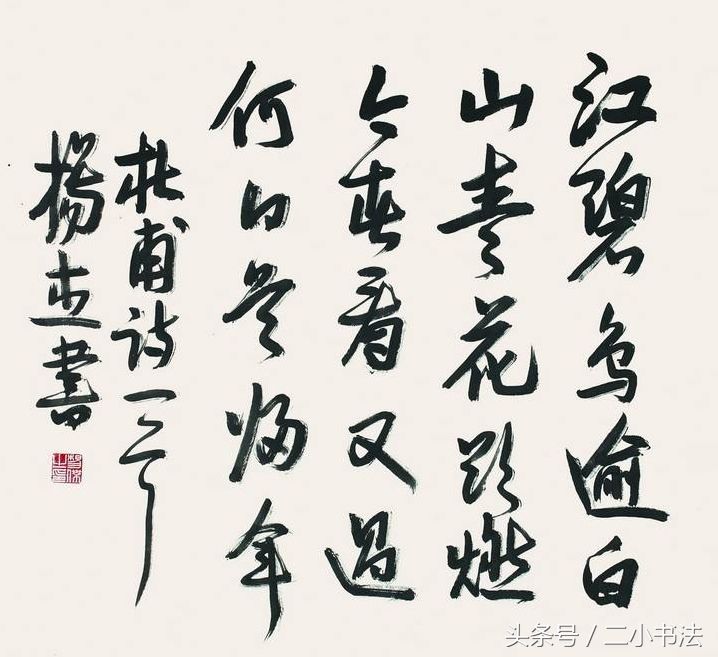 江碧鸟逾白
山青花欲燃
今春看又過
何日是归年
杜甫诗一首
楊書
头条号 / 二小书法